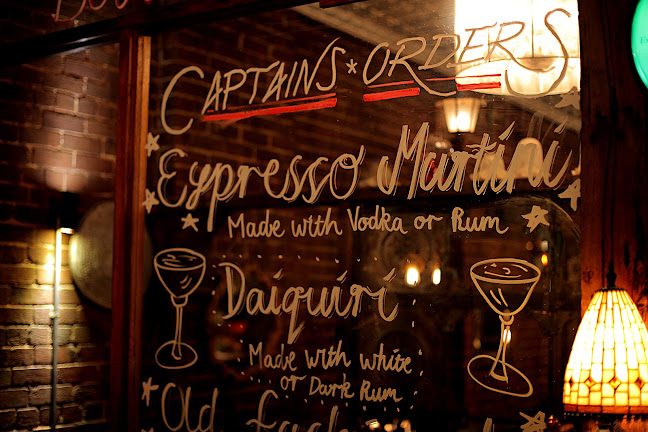 CAPTAINS * ORDERS
Espresso Martini
Made with Vodka or Rum
Daiquiri
Made with white
or Dark Rum
Old